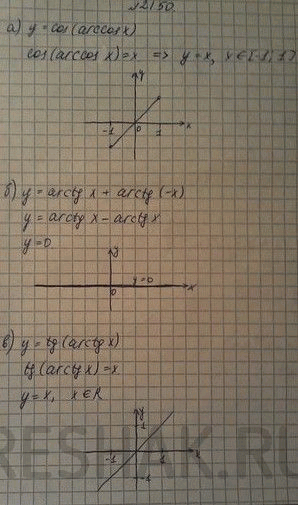 №2150.
а) y = cos(arccos x)
cos(arccos x) = x => y = x, x ∈ [-1; 1]
y
-1 0 1 x
б) y = arctg x + arctg (-x)
y = arctg x - arctg x
y = 0
y
y = 0
0 x
в) y = tg (arctg x)
tg (arctg x) = x
y = x, x ∈ R
y
1
-1 1 x
-1
RESHAK.RU